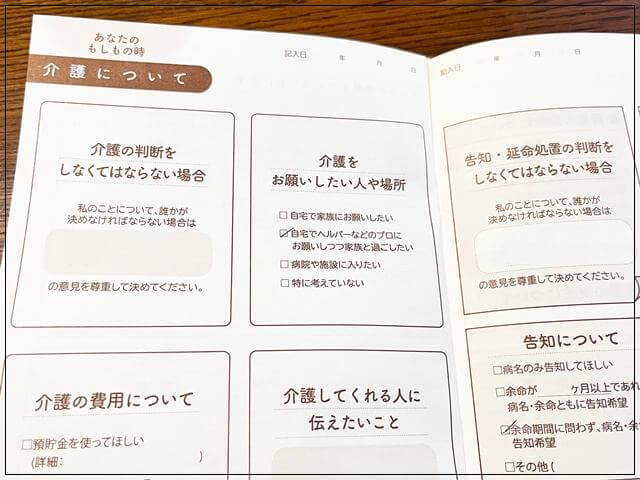 あなたの
もしもの時
介護について
記入日　年　月　日
介護の判断を
しなくてはならない場合
私のことについて、誰かが
決めなければならない場合は
の意見を尊重して決めてください。
介護を
お願いしたい人や場所
□自宅で家族にお願いしたい
☑自宅でヘルパーなどのプロに
お願いしつつ家族と過ごしたい
□病院や施設に入りたい
□特に考えていない
介護の費用について
□預貯金を使ってほしい
(詳細:　)
介護してくれる人に
伝えたいこと
記入日　年　月　日
告知・延命処置の判断を
しなくてはならない場合
私のことについて、誰かが
決めなければならない場合は
の意見を尊重して決めてください。
告知について
□病名のみ告知してほしい
□余命が　ヶ月以上であれ
病名・余命ともに告知希望
☑余命期間に問わず、病名・余
告知希望
□その他(